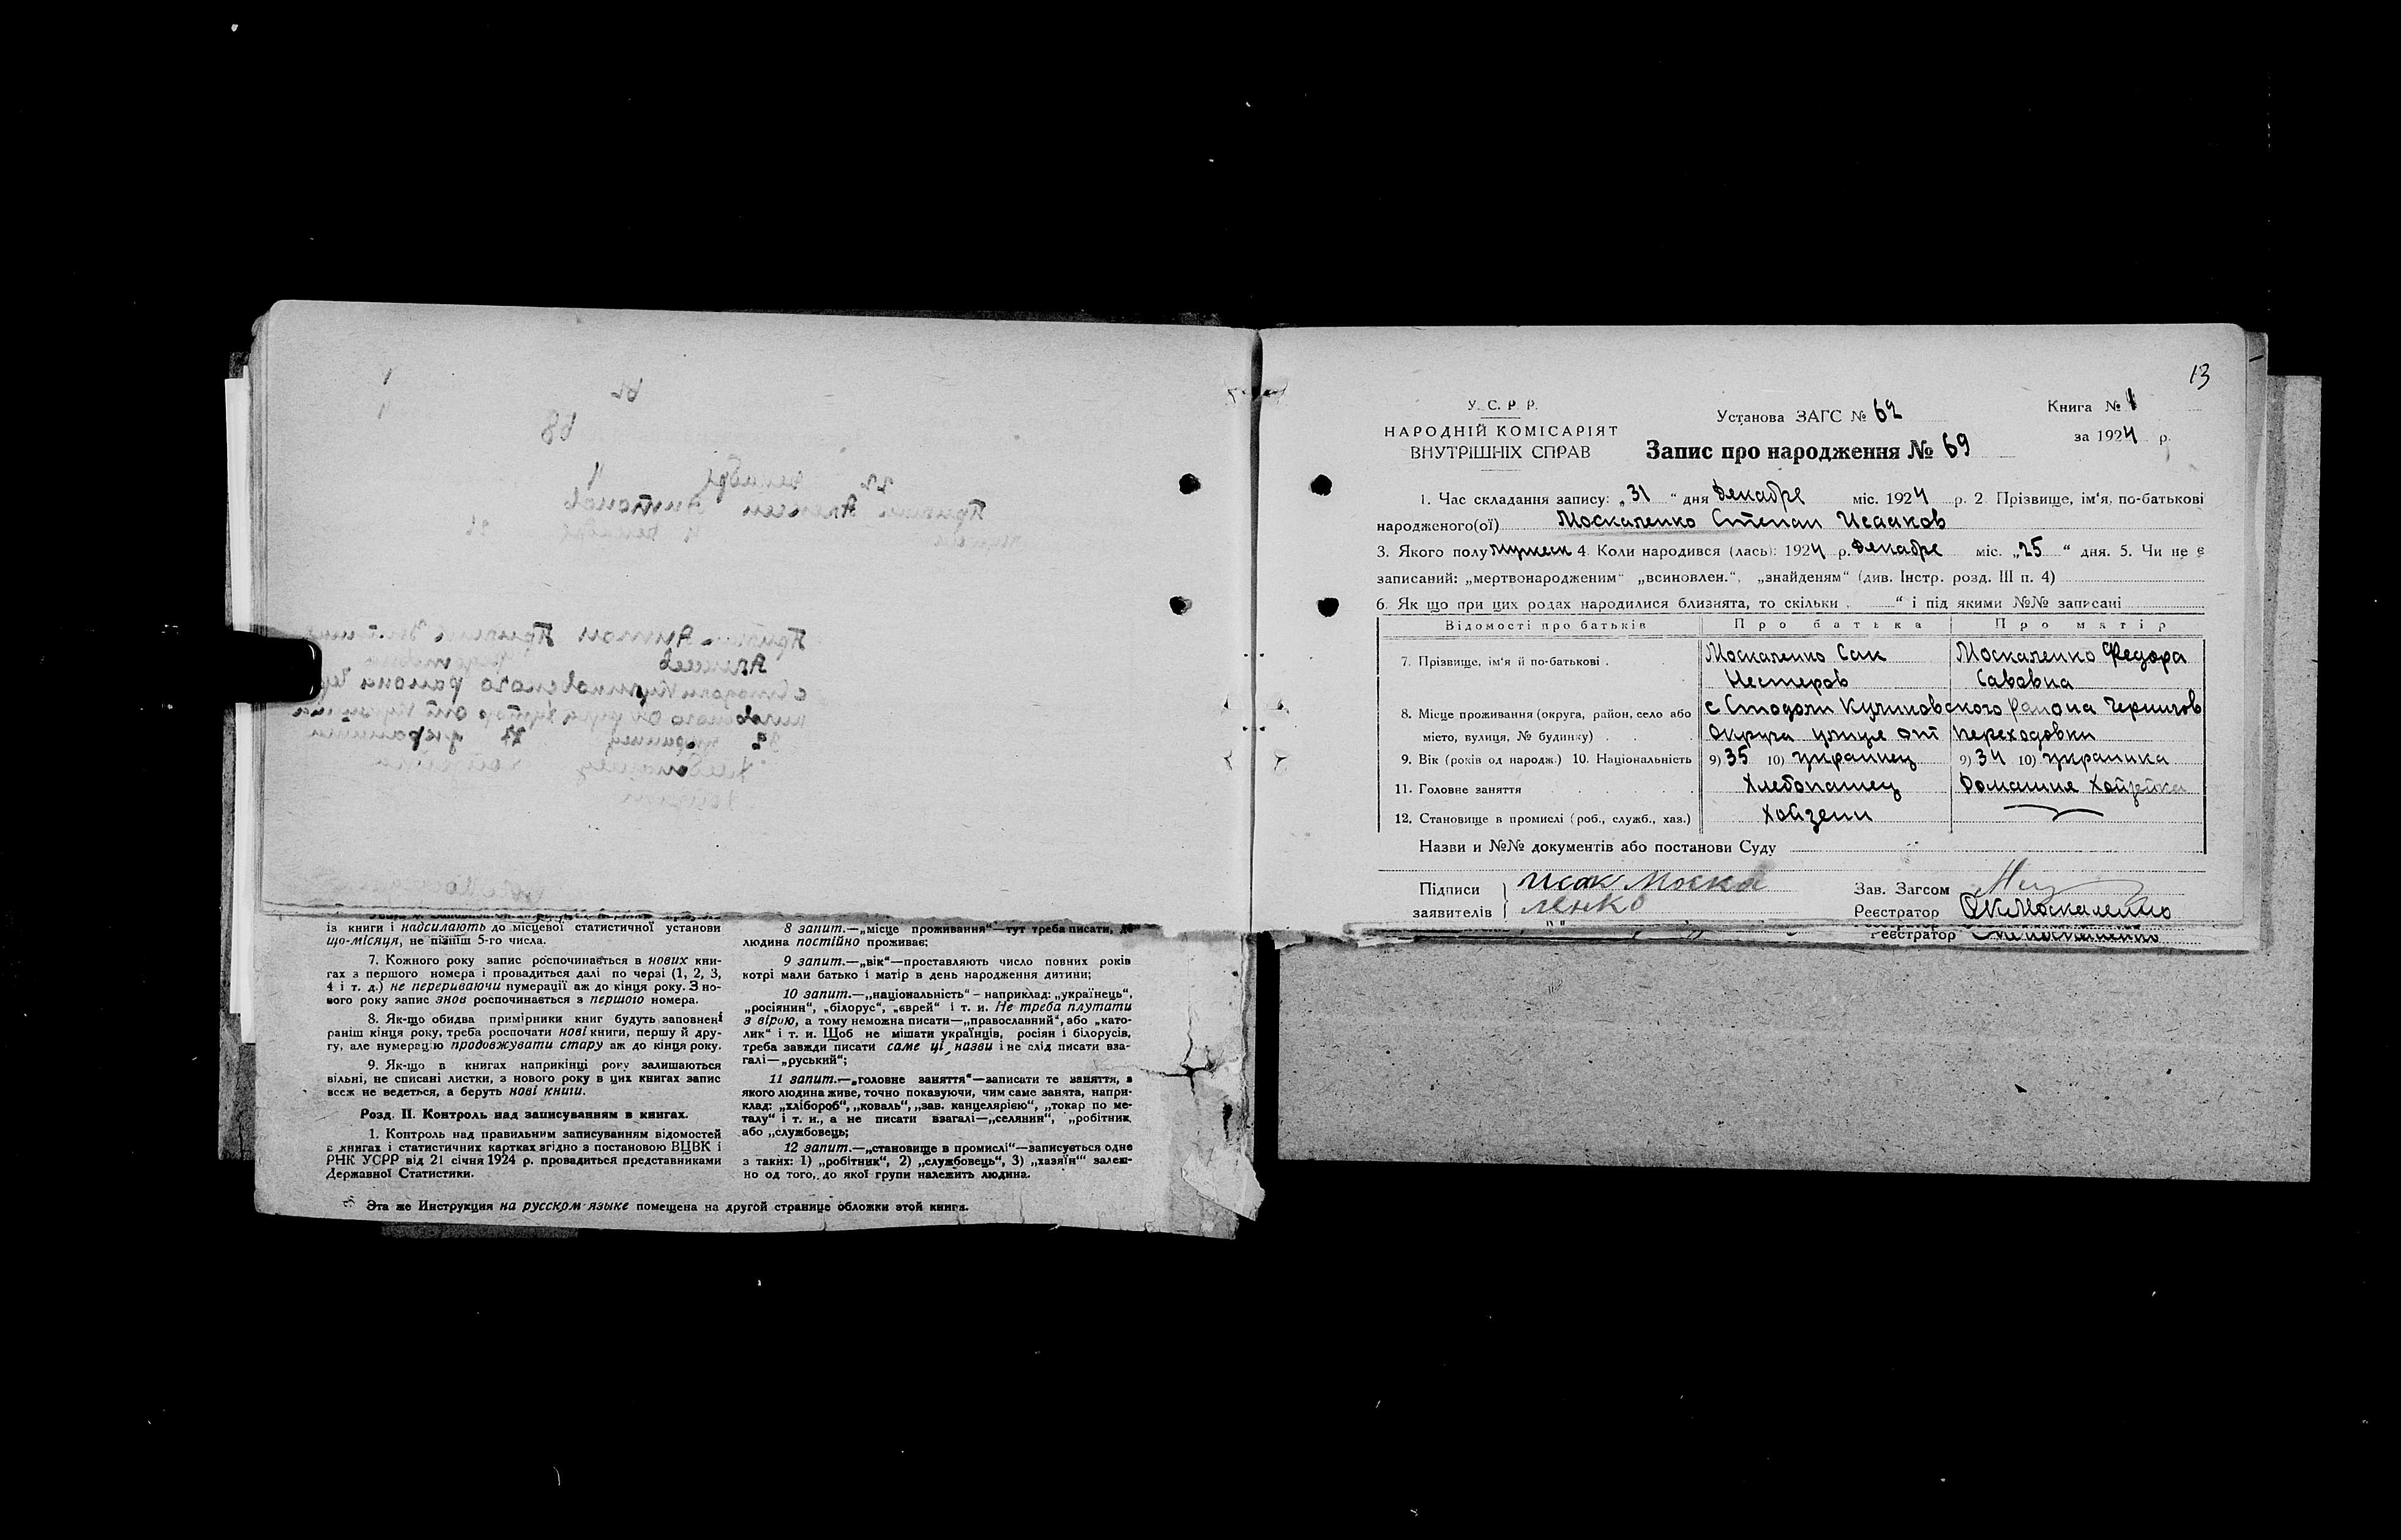 із книги і надсилають до місцевої статистичної установи
що-місяця, не пізніш 5-го числа.
7. Кожного року запис розпочинається в нових кни-
гах з першого номера і провадиться далі по черзі (1, 2, 3,
4 і т. д.) не перериваючи нумерації аж до кінця року. З но-
вого року запис знов розпочинається з першого номера.
8. Як-що обидва примірники книг будуть заповнені
раніш кінця року, треба розпочати нові книги, першу й дру-
гу, але нумерацію продовжувати стару аж до кінця року.
9. Як-що в книгах наприкінці року залишаються
вільні, не списані листки, з нового року в цих книгах запис
всеж не ведеться, а беруть нові книги.
Розд. II. Контроль над записуванням в книгах.
1. Контроль над правильним записуванням відомостей
в книгах і статистичних картках згідно з постановою ВЦВК і
РНК УСРР від 21 січня 1924 р. провадиться представниками
Державної Статистики.
8 запит.—„місце проживання“—тут треба писати, де
людина постійно проживає;
9 запит.—„вік“—проставляють число повних років
котрі мали батько і матір в день народження дитини;
10 запит.—„національність“ – наприклад: „українець“,
„росіянин“, „білорус“, „єврей“ і т. и. Не треба плутати
з вірою, а тому неможна писати—„православний“, або „като-
лик“ і т. и. Щоб не мішати українців, росіян і білорусів,
треба завжди писати саме ці назви і не слід писати вза-
галі—„руський“;
11 запит.—„головне заняття“—записати те заняття, з
якого людина живе, точно показуючи, чим саме занята, напри-
клад: „хлібороб“, „коваль“, „зав. канцелярією“, „токар по ме-
талу“ і т. и., а не писати взагалі—„селянин“, „робітник
або „службовець;
12 запит.—„становище в промислі“—записується одне
з таких: 1) „робітник“, 2) „службовець“, 3) „хазяїн“ залеж-
но од того, до якої групи належить людина.
Эта же Инструкция на русском языке помещена на другой странице обложки этой книги.
13
У. С. Р. Р.
НАРОДНІЙ КОМІСАРІЯТ
ВНУТРІШНІХ СПРАВ
Установа ЗАГС № 62
Книга № 1
за 1924 р.
Запис про народження № 69
1. Час складання запису: „31“ дня Декабре міс. 1924 р. 2. Прізвище, ім‘я, по-батькові
народженого(ої) Москаленко Степан Исааков
3. Якого полу мужеск 4. Коли народився (лась): 1924 р. Декабре міс. „25“ дня. 5. Чи не є
записаний: „мертвонародженим“ „всиновлен.“, „знайденям“ (див. Інстр. розд. III п. 4)
6. Як що при цих родах народилися близнята, то скільки „ “ і під якими №№ записані
Відомості про батьків Про батька Про матір
7. Прізвище, ім‘я й по-батькові . Москаленко Сак Москаленко Федора
Нестеров Савовна
8. Місце проживання (округа, район, село або с Стодоли Куликовского района Чернигов
місто, вулиця, № будинку) . . . Округа улице от Переходовки
9. Вік (років од народж.) 10. Національність 9) 35 10) украинец 9) 34 10) украинка
11. Головне заняття Хлебопашец Домашня Хойзейка
12. Становище в промислі (роб., служб., хаз.) Хойзеин
Назви и №№ документів або постанови Суду
Підписи Исак Моска
заявителів ленко
Зав. Загсом
Реєстратор Москаленко
Реєстратор